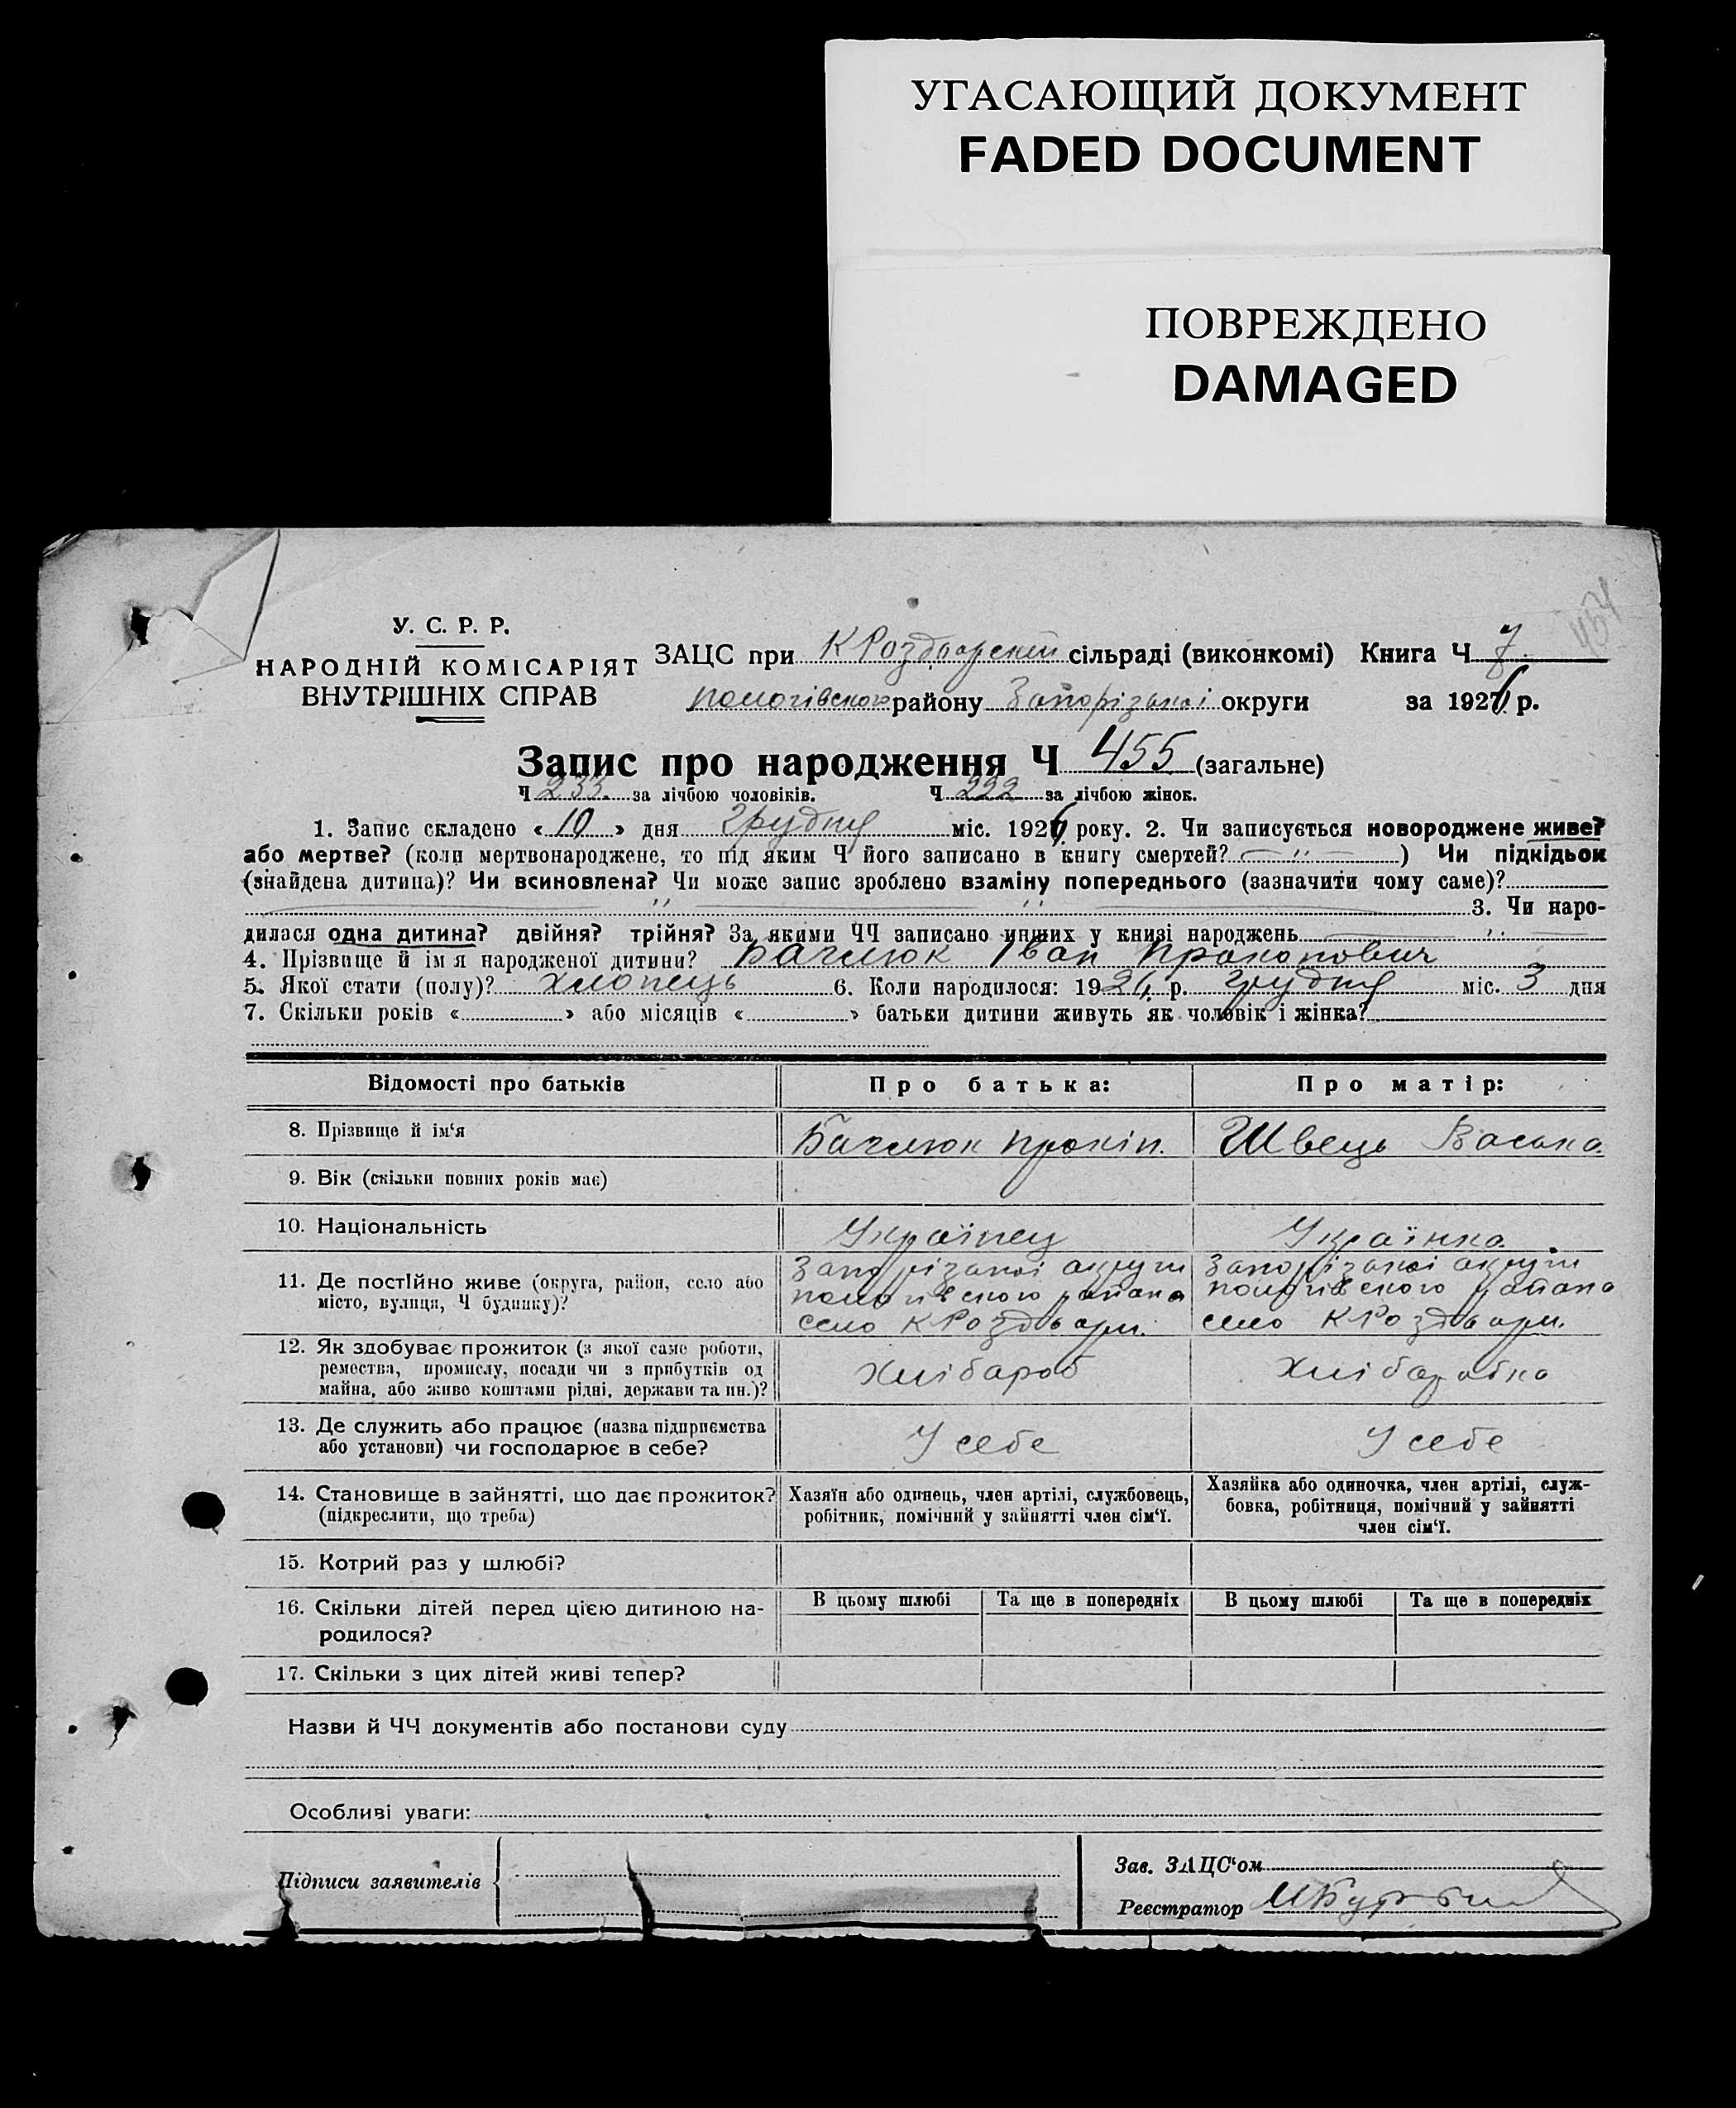 УГАСАЮЩИЙ ДОКУМЕНТ
FADED DOCUMENT
ПОВРЕЖДЕНО
DAMAGED
У. С. Р. Р.
НАРОДНІЙ КОМІСАРІЯТ
ВНУТРІШНІХ СПРАВ
ЗАЦС при К Роздорскій сільраді (виконкомі) Книга Ч 7
пологівского району Запорізькоі округи за 1926 р.
Запис про народження Ч 455 (загальне)
Ч 233 за лічбою чоловіків. Ч 222 за лічбою жінок.
1. Запис складено « 10 » дня грудня міс. 1926 року. 2. Чи записується новороджене живе?
або мертве? (коли мертвонароджене, то під яким Ч його записано в книгу смертей? ") Чи підкідьок
(знайдена дитина)? Чи всиновлена? Чи може запис зроблено взаміну попереднього (зазначити чому саме)?
" " 3. Чи наро-
дилася одна дитина? двійня? трійня? За якими ЧЧ записано инших у книзі народжень "
4. Прізвище й ім'я народженої дитини? Бачлюк Іван Прокопович
5. Якої стати (полу)? хлопець 6. Коли народилося: 1926 р. грудня міс. 3 дня
7. Скільки років « » або місяців « » батьки дитини живуть як чоловік і жінка?
Відомості про батьків Про батька: Про матір:
8. Прізвище й ім'я Бачлюк Прокіп. Швець Васька
9. Вік (скільки повних років має)
10. Національність Українец Українка
11. Де постійно живе (округа, район, село або Запорізькоі округи Запорізькоі округи
місто, вулиця, Ч будинку)? пологівского района пологівского района
село К Роздори. село К Роздори.
12. Як здобуває прожиток (з якої саме роботи,
ремества, промислу, посади чи з прибутків од
майна, або живе коштами рідні, держави та ин.)? Хлібароб Хлібаробка
13. Де служить або працює (назва підприємства
або установи) чи господарює в себе? У себе У себе
14. Становище в зайнятті, що дає прожиток?
(підкреслити, що треба)
Хазяїн або одинець, член артілі, службовець,
робітник, помічний у зайнятті член сім'ї.
Хазяйка або одиночка, член артілі, служ-
бовка, робітниця, помічний у зайнятті
член сім'ї.
15. Котрий раз у шлюбі?
16. Скільки дітей перед цією дитиною на-
родилося?
В цьому шлюбі Та ще в попередніх В цьому шлюбі Та ще в попередніх
17. Скільки з цих дітей живі тепер?
Назви й ЧЧ документів або постанови суду
Особливі уваги:
Підписи заявителів
Зав. ЗАЦС'ом
Реєстратор